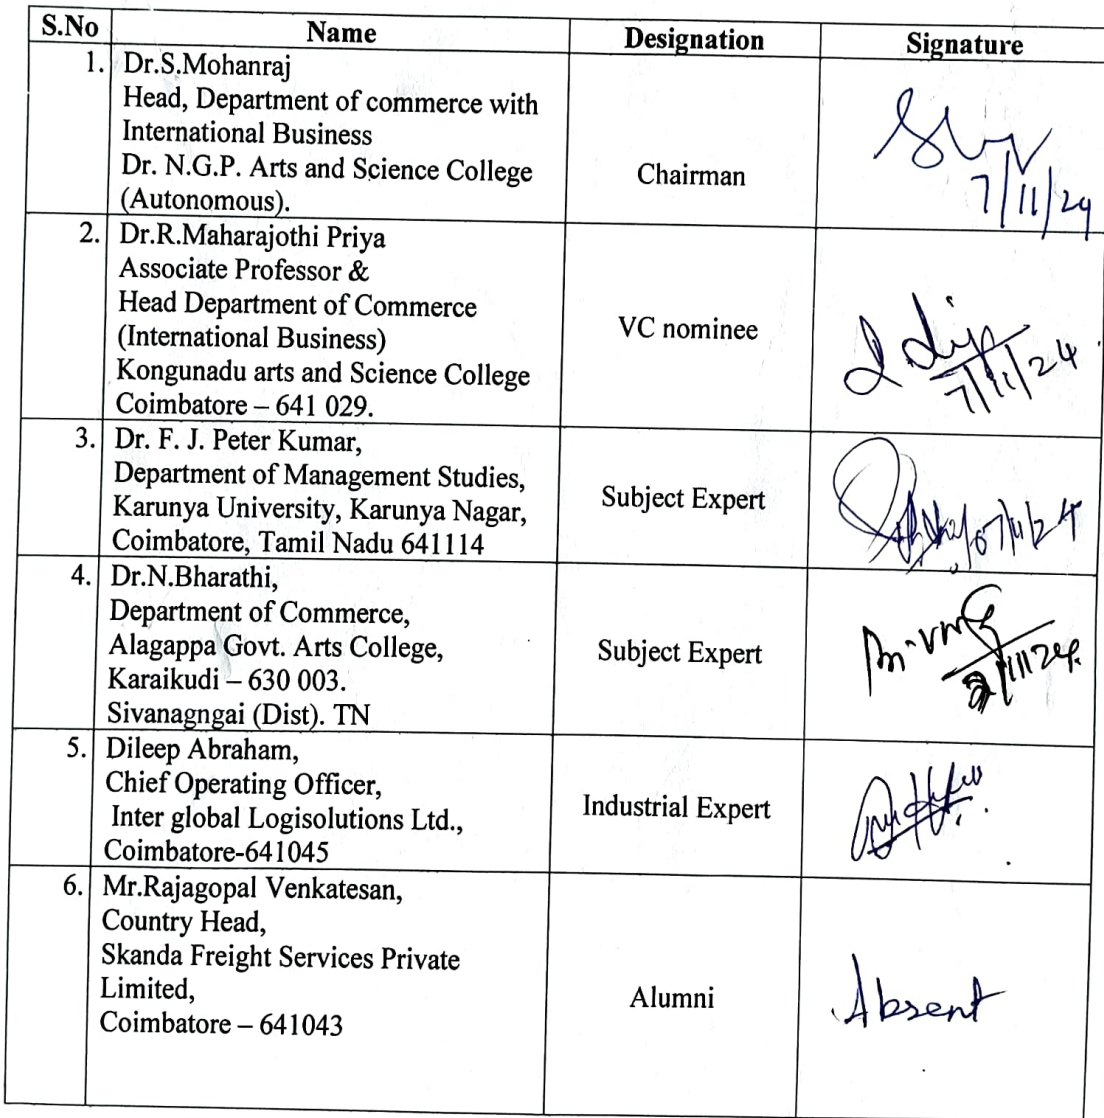 S.No Name Designation Signature
1. Dr.S.Mohanraj
Head, Department of commerce with
International Business
Dr. N.G.P. Arts and Science College
(Autonomous).
Chairman
7/11/24
2. Dr.R.Maharajothi Priya
Associate Professor &
Head Department of Commerce
(International Business)
Kongunadu arts and Science College
Coimbatore – 641 029.
VC nominee
7/11/24
3. Dr. F. J. Peter Kumar,
Department of Management Studies,
Karunya University, Karunya Nagar,
Coimbatore, Tamil Nadu 641114
Subject Expert
07/11/24
4. Dr.N.Bharathi,
Department of Commerce,
Alagappa Govt. Arts College,
Karaikudi – 630 003.
Sivanagngai (Dist). TN
Subject Expert
5. Dileep Abraham,
Chief Operating Officer,
Inter global Logisolutions Ltd.,
Coimbatore-641045
Industrial Expert
6. Mr.Rajagopal Venkatesan,
Country Head,
Skanda Freight Services Private
Limited,
Coimbatore – 641043
Alumni
Absent